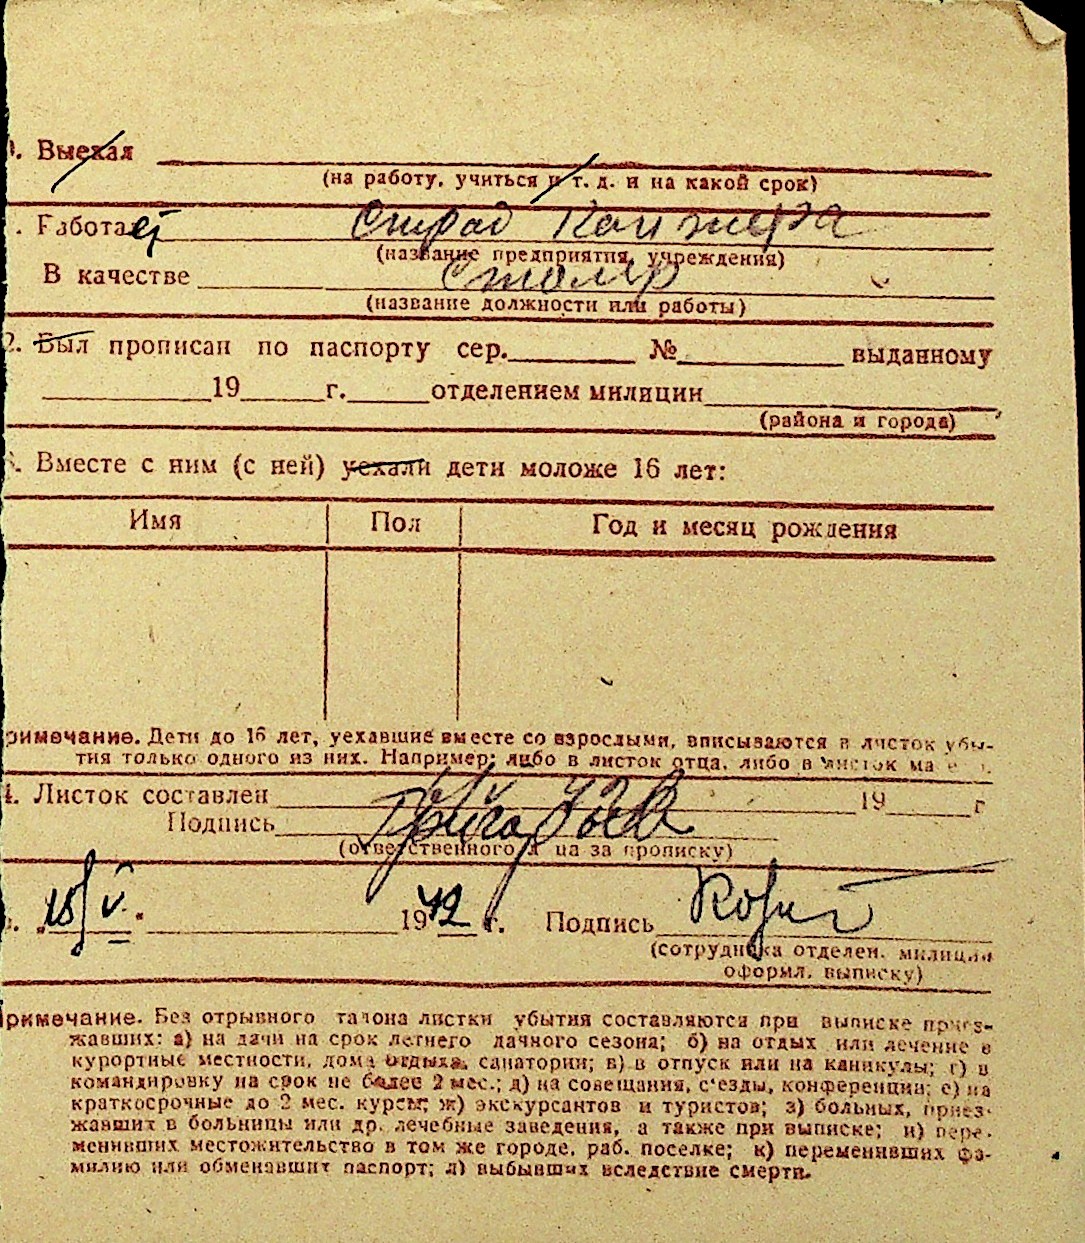 . Выехал
(на работу, учиться и т. д. и на какой срок)
. Работает
(название предприятия, учреждения)
В качестве столяр
(название должности или работы)
2. Был прописан по паспорту сер. № выданному
19 г. отделением милиции
(района и города)
. Вместе с ним (с ней) уехали дети моложе 16 лет:
Имя Пол Год и месяц рождения
римечание. Дети до 16 лет, уехавшие вместе со взрослыми, вписываются в листок убы-
тия только одного из них. Например: либо в листок отца, либо в листок ма
4. Листок составлен 19 г
Подпись
(ответственного л ца за прописку)
. 18/V 1942 г. Подпись
(сотрудника отделен. милиции
оформл. выписку)
Примечание. Без отрывного талона листки убытия составляются при выписке приез-
жавших: а) на дачи на срок летнего дачного сезона; б) на отдых или лечение в
курортные местности, дома отдыха, санатории; в) в отпуск или на каникулы; г) в
командировку на срок не более 2 мес.; д) на совещания, с'езды, конференции; е) на
краткосрочные до 2 мес. курсы; ж) экскурсантов и туристов; з) больных, приез-
жавших в больницы или др. лечебные заведения, а также при выписке; и) пере-
менивших местожительство в том же городе, раб. поселке; к) переменивших фа-
милию или обменавшит паспорт; л) выбывших вследствие смерти.